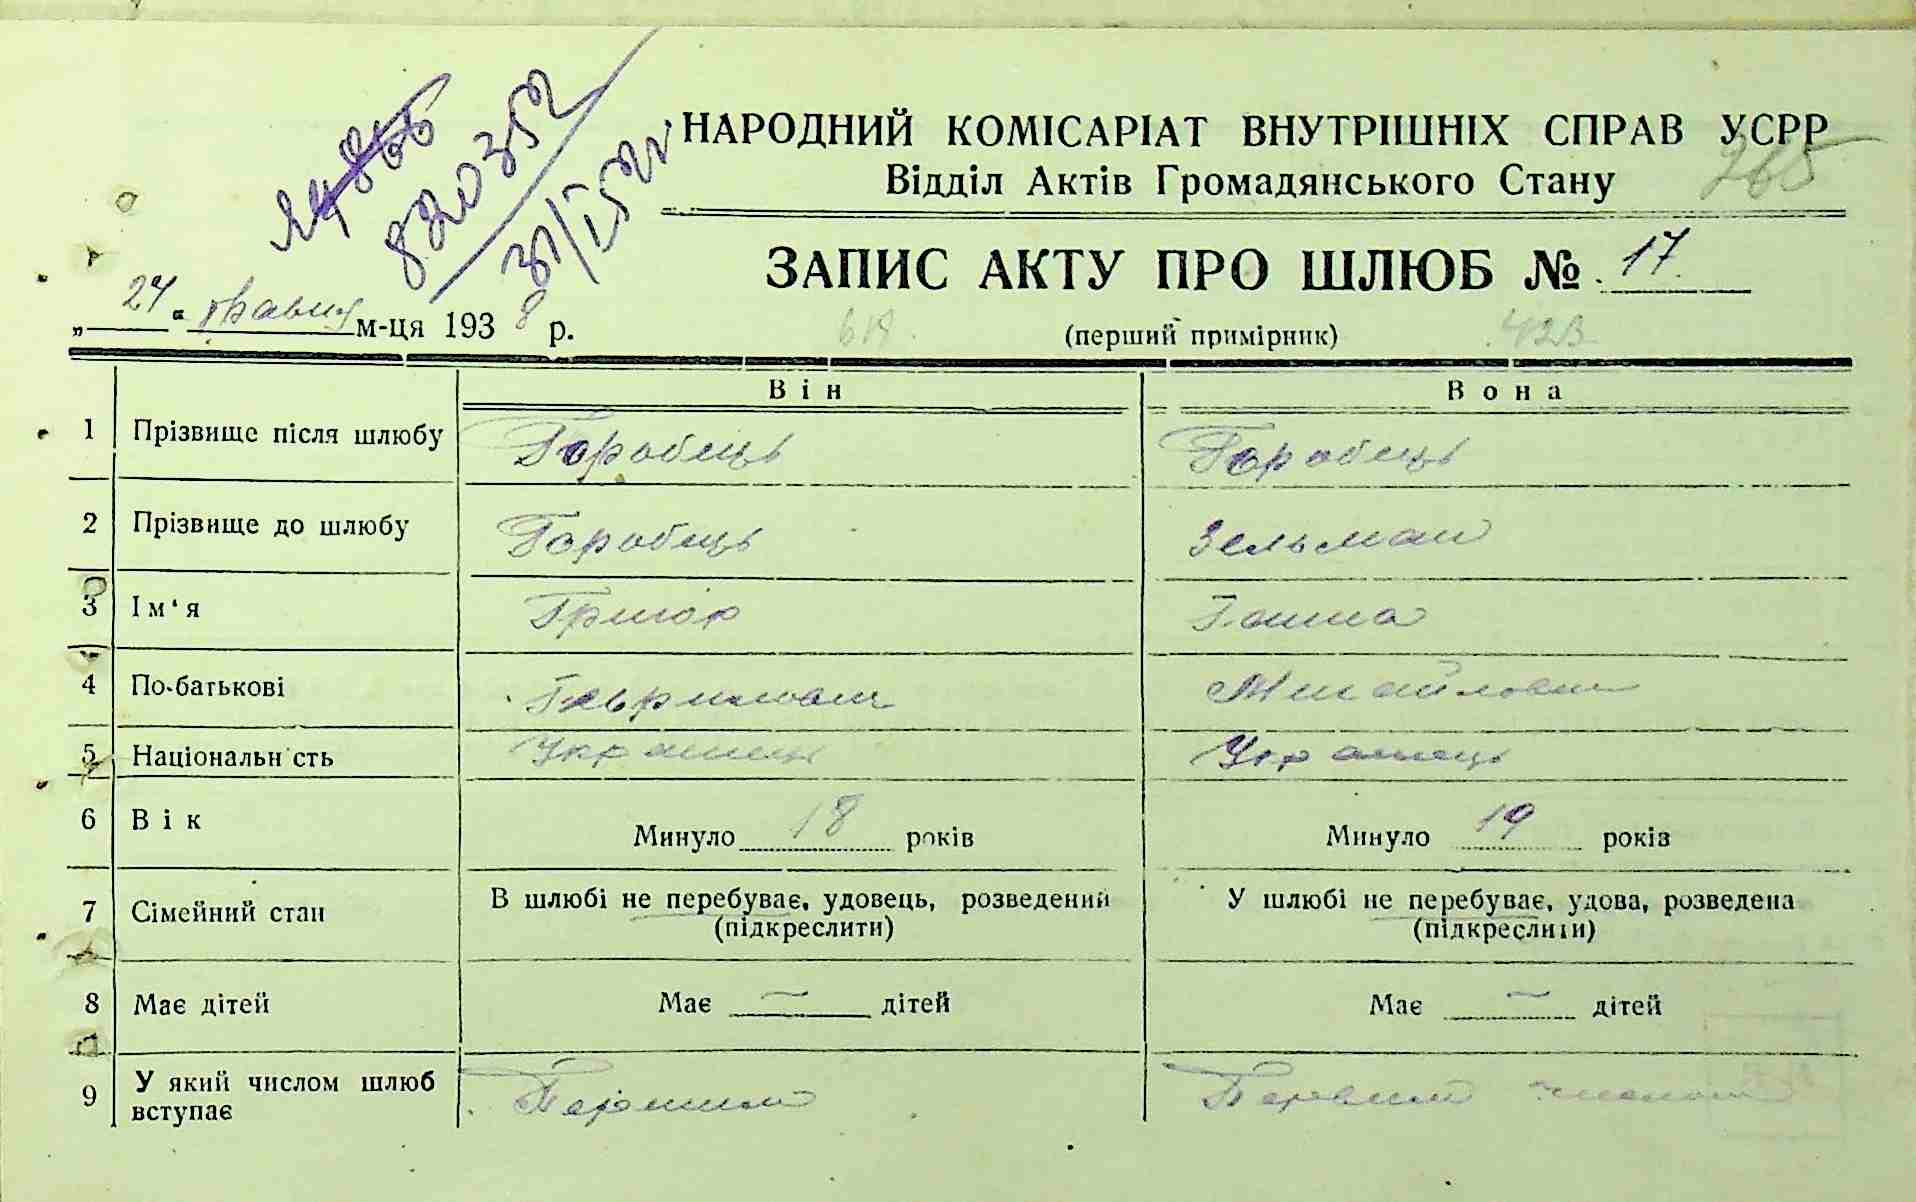 820352
31/I 52 г.
НАРОДНИЙ КОМІСАРІАТ ВНУТРІШНІХ СПРАВ УСРР
265
Відділ Актів Громадянського Стану
ЗАПИС АКТУ ПРО ШЛЮБ № 17
„24" травня м-ця 1938 р.
(перший примірник)
Він Вона
1 Прізвище після шлюбу Горобець Горобець
2 Прізвище до шлюбу Горобець Зельман
3 Ім'я Григор Ганна
4 По-батькові Гаврилович Михайловна
5 Національність Українець Українець
6 Вік Минуло 18 років Минуло 19 років
7 Сімейний стан В шлюбі не перебуває, удовець, розведений У шлюбі не перебуває, удова, розведена
(підкреслити) (підкреслити)
8 Має дітей Має — дітей Має — дітей
9 У який числом шлюб
вступає Першим Первим числом